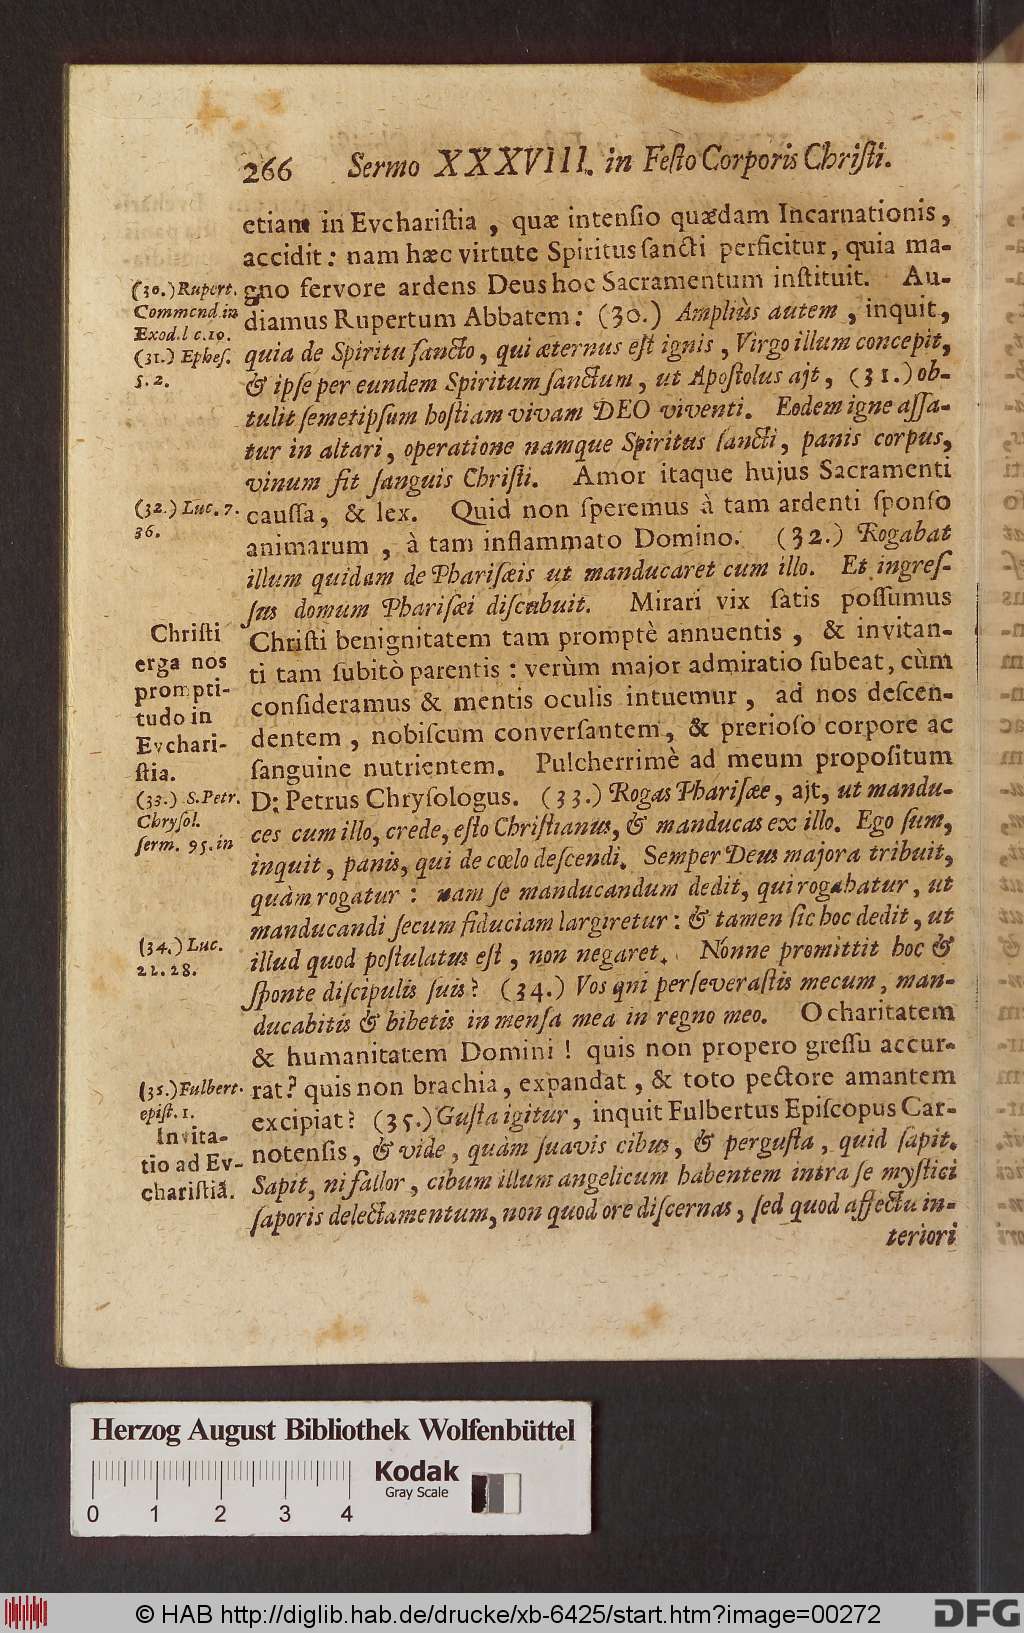 266 Sermo XXXVIII. in Feſto Corporis Chriſti.
etiam in Evchariſtia, quæ intenſio quædam Incarnationis,
accidit: nam hæc virtute Spiritus ſancti perficitur, quia ma-
gno fervore ardens Deus hoc Sacramentum inſtituit. Au-
diamus Rupertum Abbatem: (30.) Ampliùs autem, inquit,
quia de Spiritu ſancto, qui æternus eſt ignis, Virgo illum concepit,
& ipſe per eundem Spiritum ſanctum, ut Apoſtolus ajt, (31.) ob-
tulit ſemetipſum hoſtiam vivam DEO viventi. Eodem igne aſſa-
tur in altari, operatione namque Spiritus ſancti, panis corpus,
vinum fit ſanguis Chriſti. Amor itaque hujus Sacramenti
cauſſa, & lex. Quid non ſperemus à tam ardenti ſponſo
animarum, à tam inflammato Domino. (32.) Rogabat
illum quidam de Phariſæis ut manducaret cum illo. Et ingreſ-
ſus domum Phariſæi diſcubuit. Mirari vix ſatis poſſumus
Chriſti benignitatem tam promptè annuentis, & invitan-
ti tam ſubitò parentis: verùm major admiratio ſubeat, cùm
conſideramus & mentis oculis intuemur, ad nos deſcen-
dentem, nobiſcum converſantem, & prerioſo corpore ac
ſanguine nutrientem. Pulcherrimè ad meum propoſitum
D: Petrus Chryſologus. (33.) Rogas Phariſæe, ajt, ut mandu-
ces cum illo, crede, eſto Chriſtianus, & manducas ex illo. Ego ſum,
inquit, panis, qui de cœlo deſcendi. Semper Deus majora tribuit,
quàm rogatur: nam ſe manducandum dedit, qui rogabatur, ut
manducandi ſecum fiduciam largiretur: & tamen ſic hoc dedit, ut
illud quod poſtulatus eſt, non negaret. Nónne promittit hoc &
ſponte diſcipulis ſuis? (34.) Vos qni perſeveraſtis mecum, man-
ducabitis & bibetis in menſa mea in regno meo. O charitatem
& humanitatem Domini! quis non propero greſſu accur-
rat? quis non brachia, expandat, & toto pectore amantem
excipiat? (35.) Guſta igitur, inquit Fulbertus Epiſcopus Car-
notenſis, & vide, quàm ſuavis cibus, & perguſta, quid ſapit.
Sapit, ni fallor, cibum illum angelicum habentem intra ſe myſtici
ſaporis delectamentum, non quod ore diſcernas, ſed quod affectu in-
teriori
(30.) Rupert.
Commend. in
Exod. l c. 10.
(31.) Epheſ.
5. 2.
(32.) Luc. 7.
36.
Chriſti
erga nos
prompti-
tudo in
Evchari-
ſtia.
(33.) S. Petr.
Chryſol.
ſerm. 95. in
(34.) Luc.
22. 28.
(35.) Fulbert.
epiſt. 1.
Invita-
tio ad Ev-
chariſtiā.
Herzog August Bibliothek Wolfenbüttel
Kodak
Gray Scale
0 1 2 3 4
© HAB http://diglib.hab.de/drucke/xb-6425/start.htm?image=00272
DFG